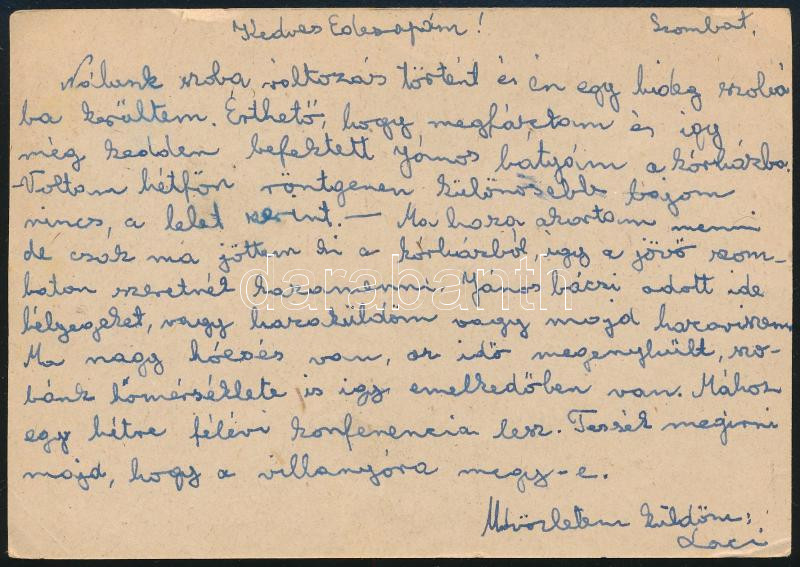 Kedves Édesapám! Szombat.
Nálunk szoba változás történt és én egy hideg szobá
ba kerültem. Érthető, hogy megfáztam és így
még kedden befektett János bátyám a kórházba.
-Voltam hétfőn röntgenen különösebb bajom
nincs, a lelet szerint. — Ma haza akartam menni
de csak ma jöttem ki a kórházból, így a jövő szom-
baton szeretnék hazamenni. János bácsi adott ide
bélyegeket, vagy hazaküldöm vagy majd hazaviszem.
Ma nagy hóesés van, az idő megenyhült, szo-
bánk hőmérséklete is így emelkedőben van. Mához
egy hétre félévi konferencia lesz. Tessék megírni
majd, hogy a villanyóra megy-e.
Üdvözletem küldöm:
Laci
darabanth